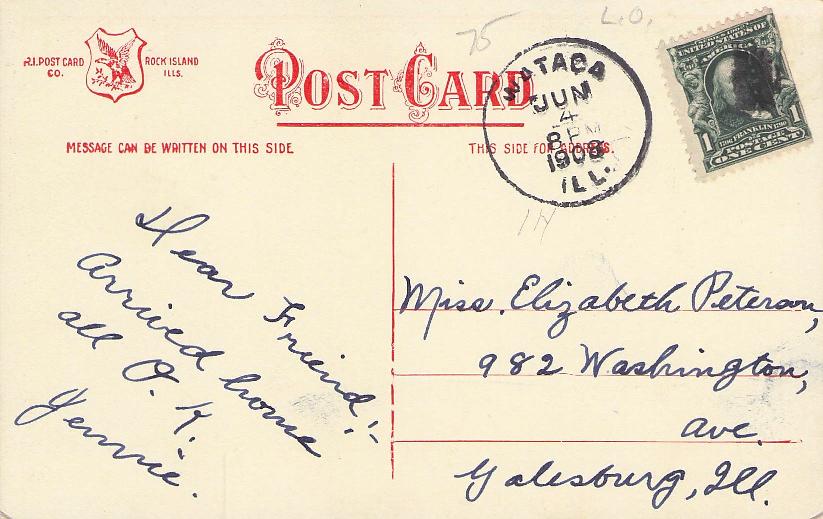 75
L.O.
R.I. POST CARD CO.
ROCK ISLAND ILLS.
POST CARD
WATAGA
JUN
4
8 PM
1908
ILL.
UNITED STATES OF
AMERICA
1 FRANKLIN 1
ONE CENT
MESSAGE CAN BE WRITTEN ON THIS SIDE
THIS SIDE FOR ADDRESS.
Dear Friend:-
Arrived home
all O.K.
Jennie.
Miss. Elizabeth Peterson,
982 Washington,
ave.
Galesburg, Ill.